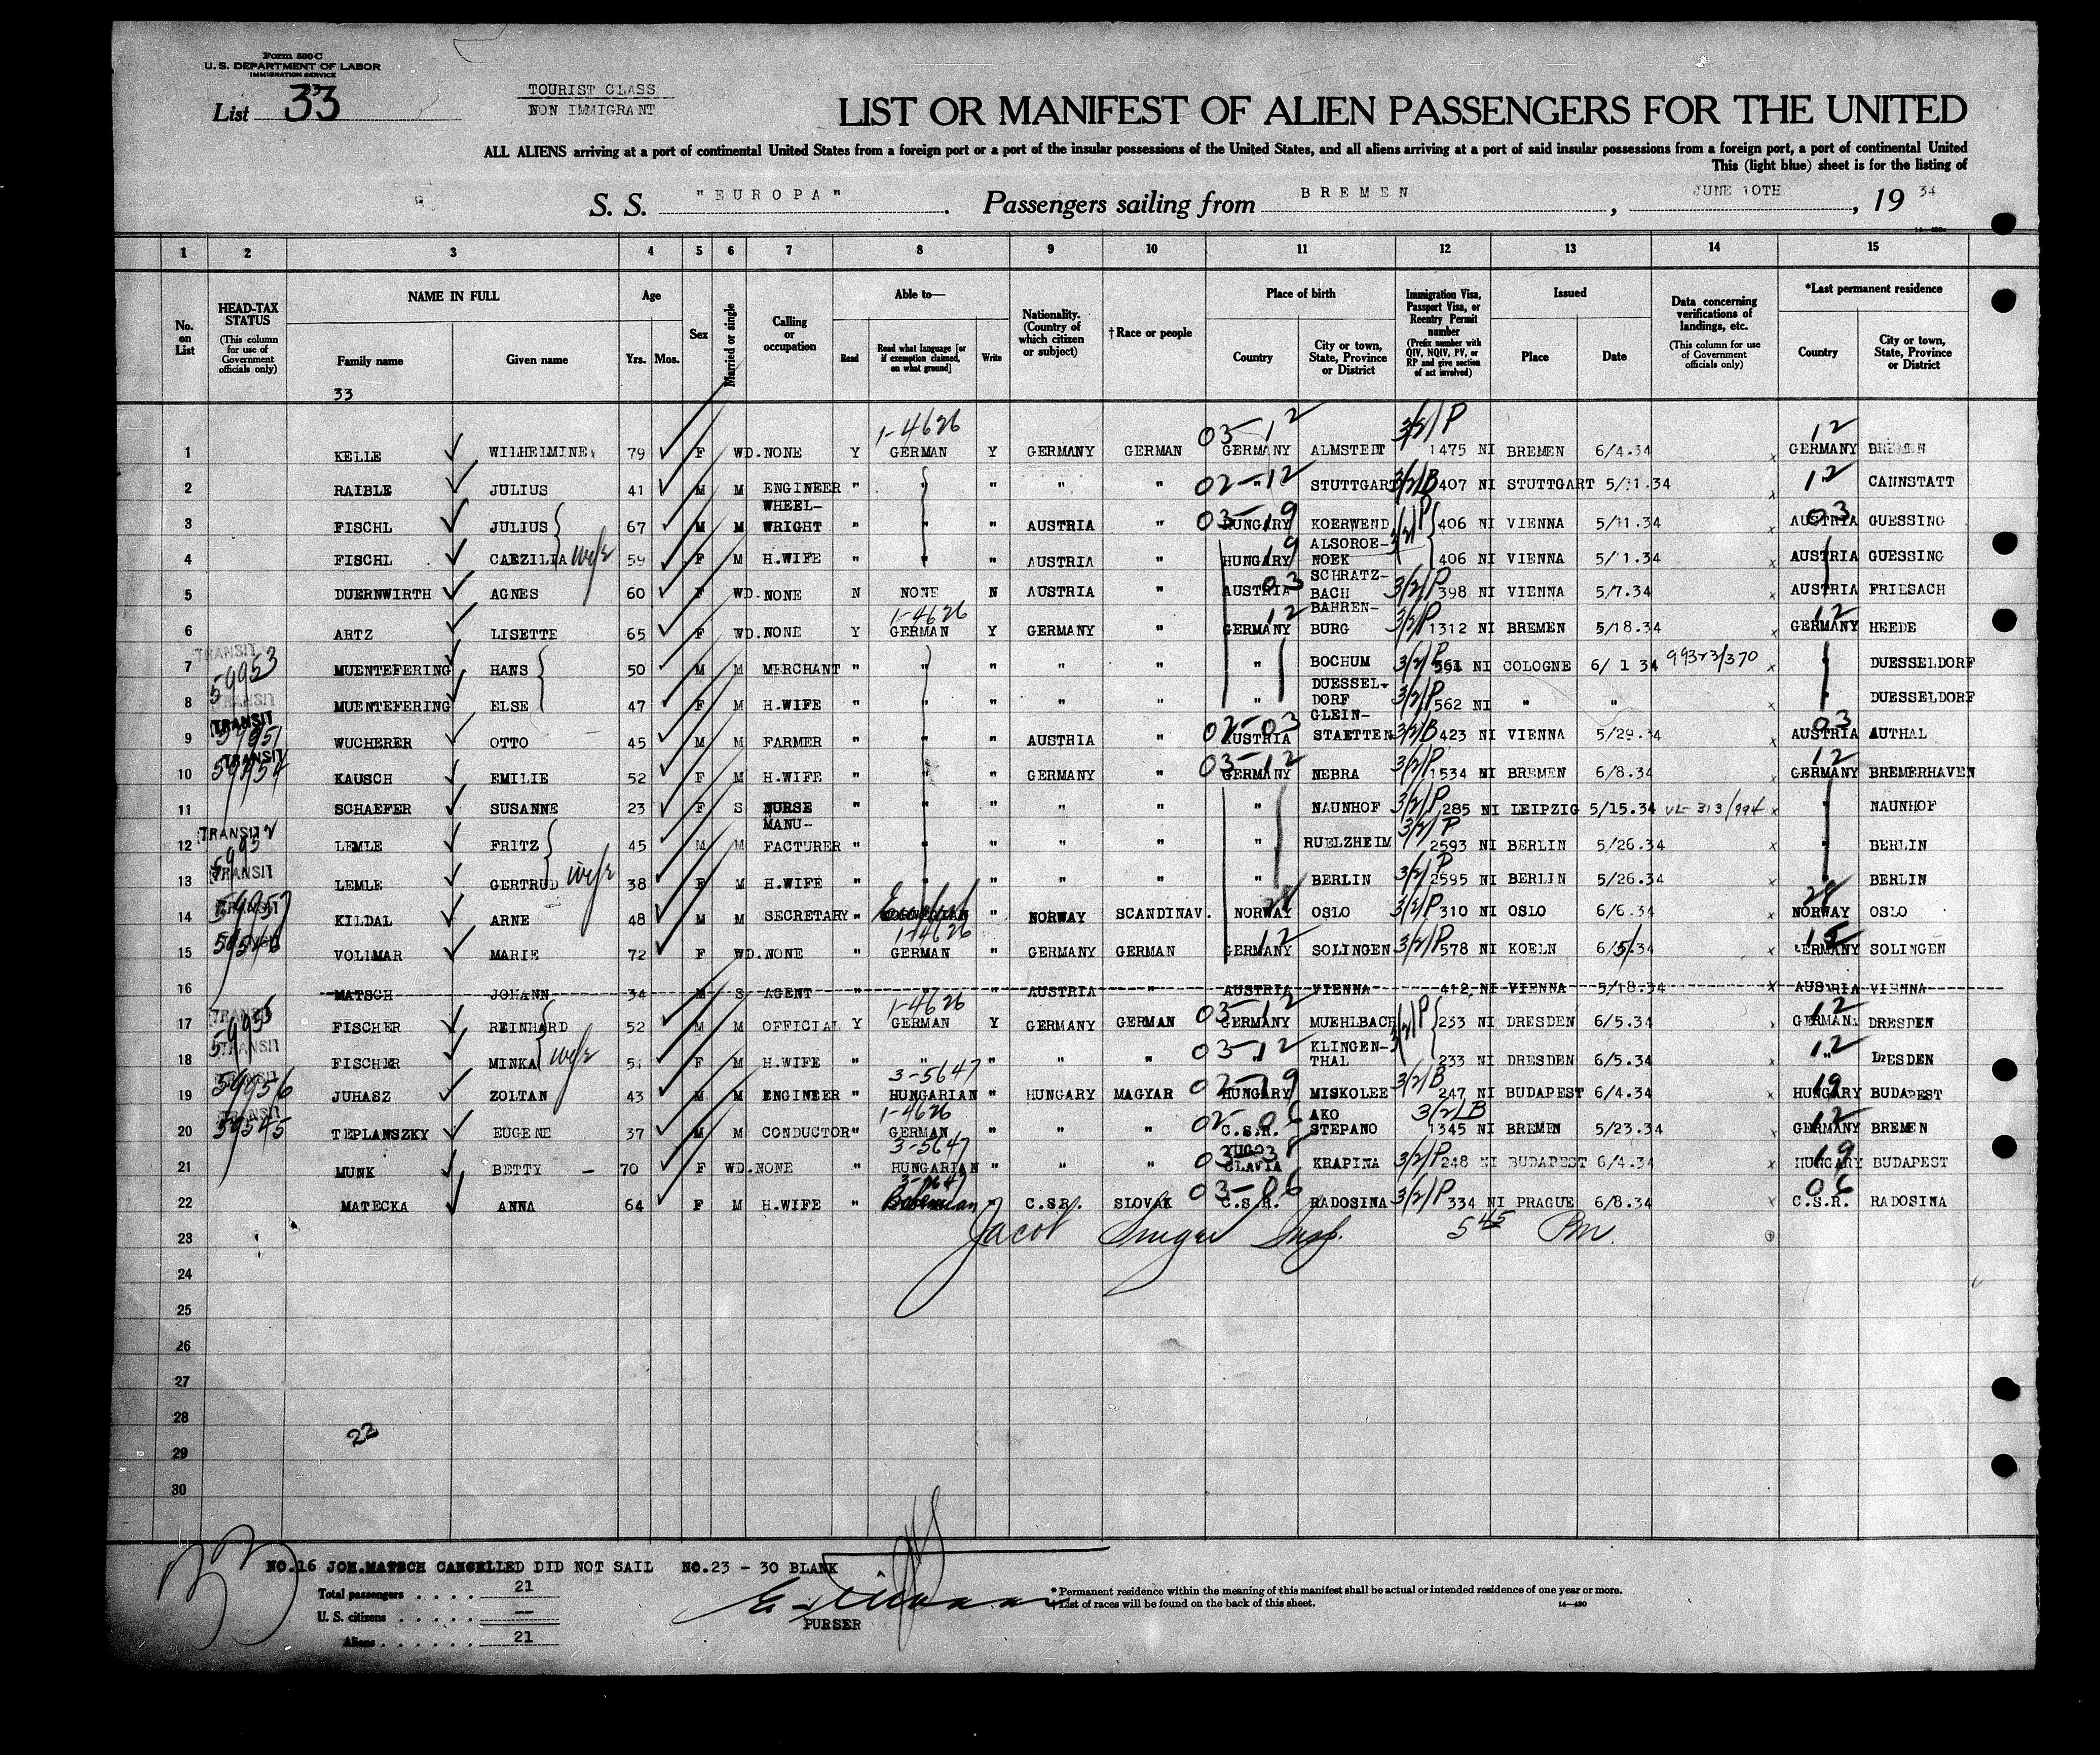 Form 500 C
U. S. DEPARTMENT OF LABOR
IMMIGRATION SERVICE
List 33
TOURIST CLASS
NON IMMIGRANT
LIST OR MANIFEST OF ALIEN PASSENGERS FOR THE UNITED
ALL ALIENS arriving at a port of continental United States from a foreign port or a port of the insular possessions of the United States, and all aliens arriving at a port of said insular possessions from a foreign port, a port of continental United
This (light blue) sheet is for the listing of
S. S. "EUROPA" . Passengers sailing from BREMEN , JUNE 10TH , 19 34
1 2 3 4 5 6 7 8 9 10 11 12 13 14 15
No. on List
HEAD-TAX STATUS (This column for use of Government officials only)
NAME IN FULL
Family name
Given name
Age
Yrs. Mos.
Sex
Married or single
Calling or occupation
Able to—
Read
Read what language [or if exemption claimed, on what ground]
Write
Nationality. (Country of which citizen or subject)
†Race or people
Place of birth
Country
City or town, State, Province or District
Immigration Visa, Passport Visa, or Reentry Permit number (Prefix number with QIV, NQIV, PV, or RP and give section of act involved)
Issued
Place
Date
Data concerning verifications of landings, etc. (This column for use of Government officials only)
*Last permanent residence
Country
City or town, State, Province or District
33
1-4626 03-12 3/2/P 12
1 KELLE WILHELMINE 79 F WD. NONE Y GERMAN Y GERMANY GERMAN GERMANY ALMSTEDT 1475 NI BREMEN 6/4.34 x GERMANY BREMEN
2 RAIBLE JULIUS 41 M M ENGINEER " " " " " 02-12 " STUTTGART 3/2/B 407 NI STUTTGART 5/11.34 x 12 " CANNSTATT
3 FISCHL JULIUS 67 M M WHEEL-WRIGHT " " " AUSTRIA " 03-19 HUNGARY KOERWEND 3/2/P 406 NI VIENNA 5/11.34 x 03 AUSTRIA GUESSING
4 FISCHL CAEZILIA wife 59 F M H.WIFE " " " AUSTRIA " 19 HUNGARY ALSOROE-NOEK 406 NI VIENNA 5/11.34 x AUSTRIA GUESSING
5 DUERNWIRTH AGNES 60 F WD. NONE N NONE N AUSTRIA " 03 AUSTRIA SCHRATZ-BACH 3/2/P 398 NI VIENNA 5/7.34 x AUSTRIA FRIESACH
6 ARTZ LISETTE 65 F WD. NONE Y 1-4626 GERMAN Y GERMANY " 12 GERMANY BAHREN-BURG 3/2/P 1312 NI BREMEN 5/18.34 x 12 GERMANY HEEDE
7 TRANSIT 59953 MUENTEFERING HANS 50 M M MERCHANT " " " " " " BOCHUM 3/2/P 561 NI COLOGNE 6/ 1 34 99323/370 x " DUESSELDORF
8 TRANSIT MUENTEFERING ELSE 47 F M H.WIFE " " " " " " DUESSEL-DORF 3/2/P 562 NI " " x " DUESSELDORF
9 TRANSIT 59951 WUCHERER OTTO 45 M M FARMER " " " AUSTRIA " 02-03 AUSTRIA GLEIN-STAETTEN 3/2/B 423 NI VIENNA 5/29.34 x 03 AUSTRIA AUTHAL
10 TRANSIT 59954 KAUSCH EMILIE 52 F M H.WIFE " " " GERMANY " 03-12 GERMANY NEBRA 3/2/P 1534 NI BREMEN 6/8.34 x 12 GERMANY BREMERHAVEN
11 SCHAEFER SUSANNE 23 F S NURSE " " " " " " NAUNHOF 3/2/P 285 NI LEIPZIG 5/15.34 VL-313/994 x " NAUNHOF
12 TRANSIT LEMLE FRITZ 45 M M MANU-FACTURER " " " " " " RUELZHEIM 3/2/P 2593 NI BERLIN 5/26.34 x " BERLIN
13 TRANSIT LEMLE GERTRUD wife 38 F M H.WIFE " " " " " " BERLIN 3/2/P 2595 NI BERLIN 5/26.34 x " BERLIN
14 TRANSIT 59957 KILDAL ARNE 48 M M SECRETARY " English " NORWAY SCANDINAV. 28 NORWAY OSLO 3/2/P 310 NI OSLO 6/6.34 x 28 NORWAY OSLO
15 VOLLMAR MARIE 72 F WD. NONE " 1-4626 GERMAN " GERMANY GERMAN 12 GERMANY SOLINGEN 3/2/P 578 NI KOELN 6/5/34 x GERMANY SOLINGEN
16 MATSCH JOHANN 34 M S AGENT " " " AUSTRIA " AUSTRIA VIENNA 412 NI VIENNA 5/18.34 x AUSTRIA VIENNA
17 TRANSIT 59955 FISCHER REINHARD 52 M M OFFICIAL Y 1-4626 GERMAN Y GERMANY GERMAN 03-12 GERMANY MUEHLBACH 3/2/P 233 NI DRESDEN 6/5.34 x 12 GERMANY DRESDEN
18 TRANSIT FISCHER MINKA wife 51 F M H.WIFE " " " " " 03-12 " KLINGEN-THAL 233 NI DRESDEN 6/5.34 x 12 " DRESDEN
19 59956 JUHASZ ZOLTAN 43 M M ENGINEER " 3-5647 HUNGARIAN " HUNGARY MAGYAR 02-19 HUNGARY MISKOLEE 3/2/B 247 NI BUDAPEST 6/4.34 x 19 HUNGARY BUDAPEST
20 TRANSIT 59545 TEPLANSZKY EUGENE 37 M M CONDUCTOR " 1-4626 GERMAN " " " 02-06 C.S.R. AKO STEPANO 3/2/B 1345 NI BREMEN 5/23.34 x 12 GERMANY BREMEN
21 MUNK BETTY - 70 F WD. NONE " 3-5647 HUNGARIAN " " " YUGO SLAVIA KRAPINA 3/2/P 248 NI BUDAPEST 6/4.34 x 19 HUNGARY BUDAPEST
22 MATECKA ANNA 64 F M H.WIFE " Bohemian " C.S.R. SLOVAK 03-06 C.S.R. RADOSINA 3/2/P 334 NI PRAGUE 6/8.34 x 06 C.S.R. RADOSINA
23 Jacob Insp. 5 45 Pm.
24
25
26
27
28
22
29
30
33
NO.16 JOH.MATSCH CANCELLED DID NOT SAIL NO.23 - 30 BLANK
Total passengers . . . . 21
U. S. citizens . . . . . —
Aliens . . . . . . 21
PURSER
* Permanent residence within the meaning of this manifest shall be actual or intended residence of one year or more.
† List of races will be found on the back of this sheet.
14—430